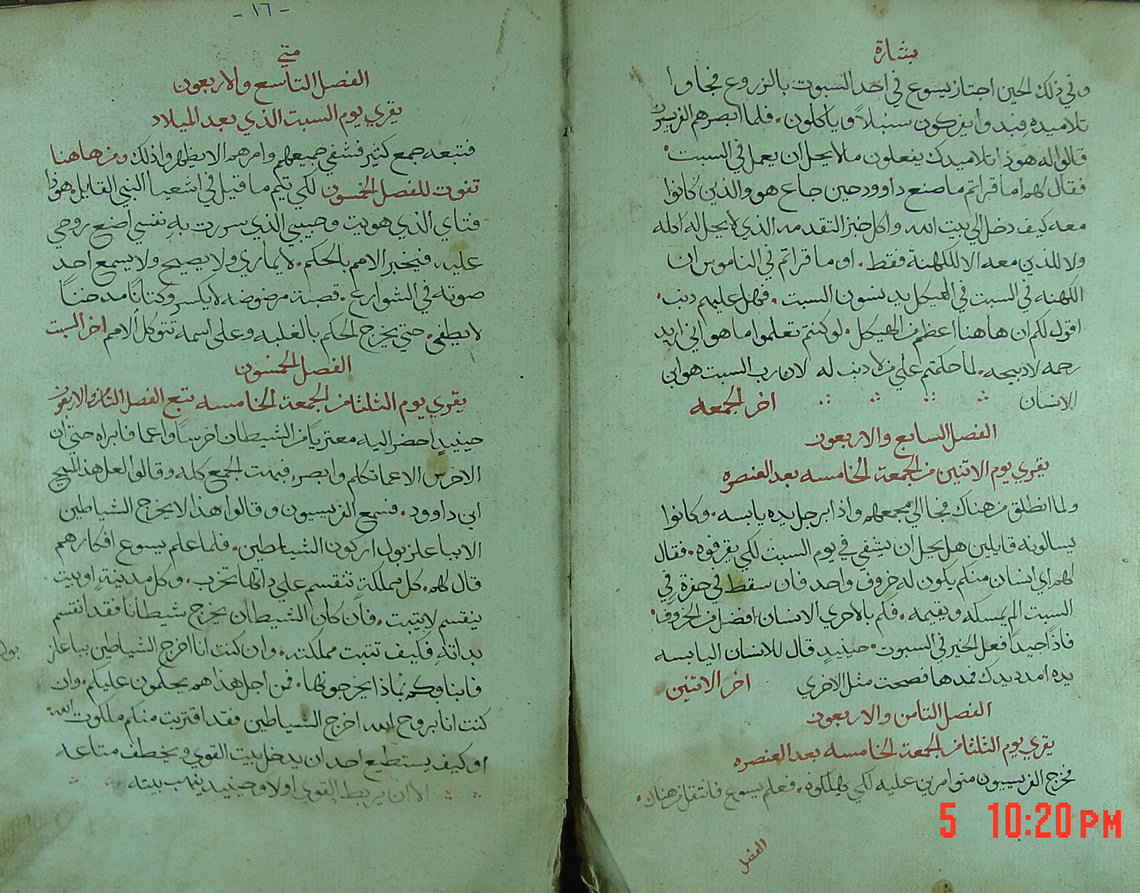 بشارة
وفي ذلك الحين اجتاز يسوع في احد السبوت بالزروع فجاوا
تلاميذه فبدوا يفركون سنبلاً وياكلون. فلما ابصرهم الفريسيون
قالوا له هوذا تلاميذك يفعلون ما لا يحل ان يعمل في السبت.
فقال لهم اما قراتم ما صنع داوود حين جاع هو والذين كانوا
معه كيف دخل الي بيت الله واكل خبز التقدمه الذي لا يحل له اكله
ولا للذين معه الا للكهنة فقط. او ما قراتم في الناموس ان
الكهنه في السبت في الهيكل يدنسون السبت. فهل عليهم ذنب.
اقول لكم ان هاهنا اعظم من الهيكل. لو كنتم تعلموا ما هو اني اريد
رحمه لا ذبيحه. لما حكمتم علي من لا ذنب له لان رب السبت هو ابن
الانسان اخر الجمعه
الفصل السابع والاربعون
يقري يوم الاثنين من الجمعة الخامسه بعد العنصره
ولما انطلق من هناك فجا الي مجمعهم واذا برجل يده يابسه. وكانوا
يسالونه قايلين هل يحل ان يشفي في يوم السبت لكي يقرفوه. فقال
لهم اي انسان منكم يكون له خروف واحد فان سقط في حفرة في
السبت الم يمسكه ويقيمه. فلم بالاحري الانسان افضل من الخروف.
فاذاً جيداً فعل الخير في السبوت. حينيذٍ قال للانسان اليابسه
يده امدد يدك فمدها فصحت مثل الاخري اخر الاثنين
الفصل الثامن والاربعون
يقري يوم الثلثا من الجمعة الخامسه بعد العنصره
فخرج الفريسيون متوامرين عليه لكي يهلكوه. فعلم يسوع فانتقل من هناك.
الفصل
5 10:20 PM
-١٦-
متي
الفصل التاسع والاربعون
يقري يوم السبت الذي بعد الميلاد
فتبعه جمع كثير فشفي جميعهم وامرهم الا يظهروا ذلك ومن هاهنا
تفوت للفصل الخمسون لكي يتم ما قيل في اشعيا النبي القايل. هوذا
فتاي الذي هويت وحبيبي الذي سرت به نفسي اضع روحي
عليه. فيخبر الامم بالحكم. لا يماري ولا يصيح ولا يسمع احد
صوته في الشوارع. قصبة مرضوضه لا يكسر وكتاناً مدخناً
لا يطفي. حتي يخرج الحكم بالغلبه وعلى اسمه تتوكل الامم اخر السبت
الفصل الخمسون
يقري يوم الثلثا من الجمعة الخامسه تبع الفصل الثامن والاربعون
حينيذٍ احضر اليه معتريًا من الشيطان اخرسًا واعما فابراه حتي ان
الاخرس الاعما تكلم وابصر. فبهت الجمع كله وقالوا لعل هذا المسيح
ابن داوود. فسمع الفريسيون وقالوا هذا لا يخرج الشياطين
الا بباعلزبول اركون الشياطين. فلما علم يسوع افكارهم
قال لهم. كل مملكة تنقسم على ذاتها تخرب. وكل مدينة او بيت
ينقسم لا يثبت. فان كان الشيطان يخرج شيطاناً فقد انقسم
بذاته فكيف تثبت مملكته. وان كنت انا اخرج الشياطين بباعلز
بول
فابناوكم بماذا يخرجونها. فمن اجل هذا هم يحكمون عليكم. وان
كنت انا بروح الله اخرج الشياطين فقد اقتربت منكم ملكوت الله.
او كيف يستطيع احد ان يدخل بيت القوي ويخطف متاعه
الا ان يربط القوي اولا وحينيذ ينهب بيته.